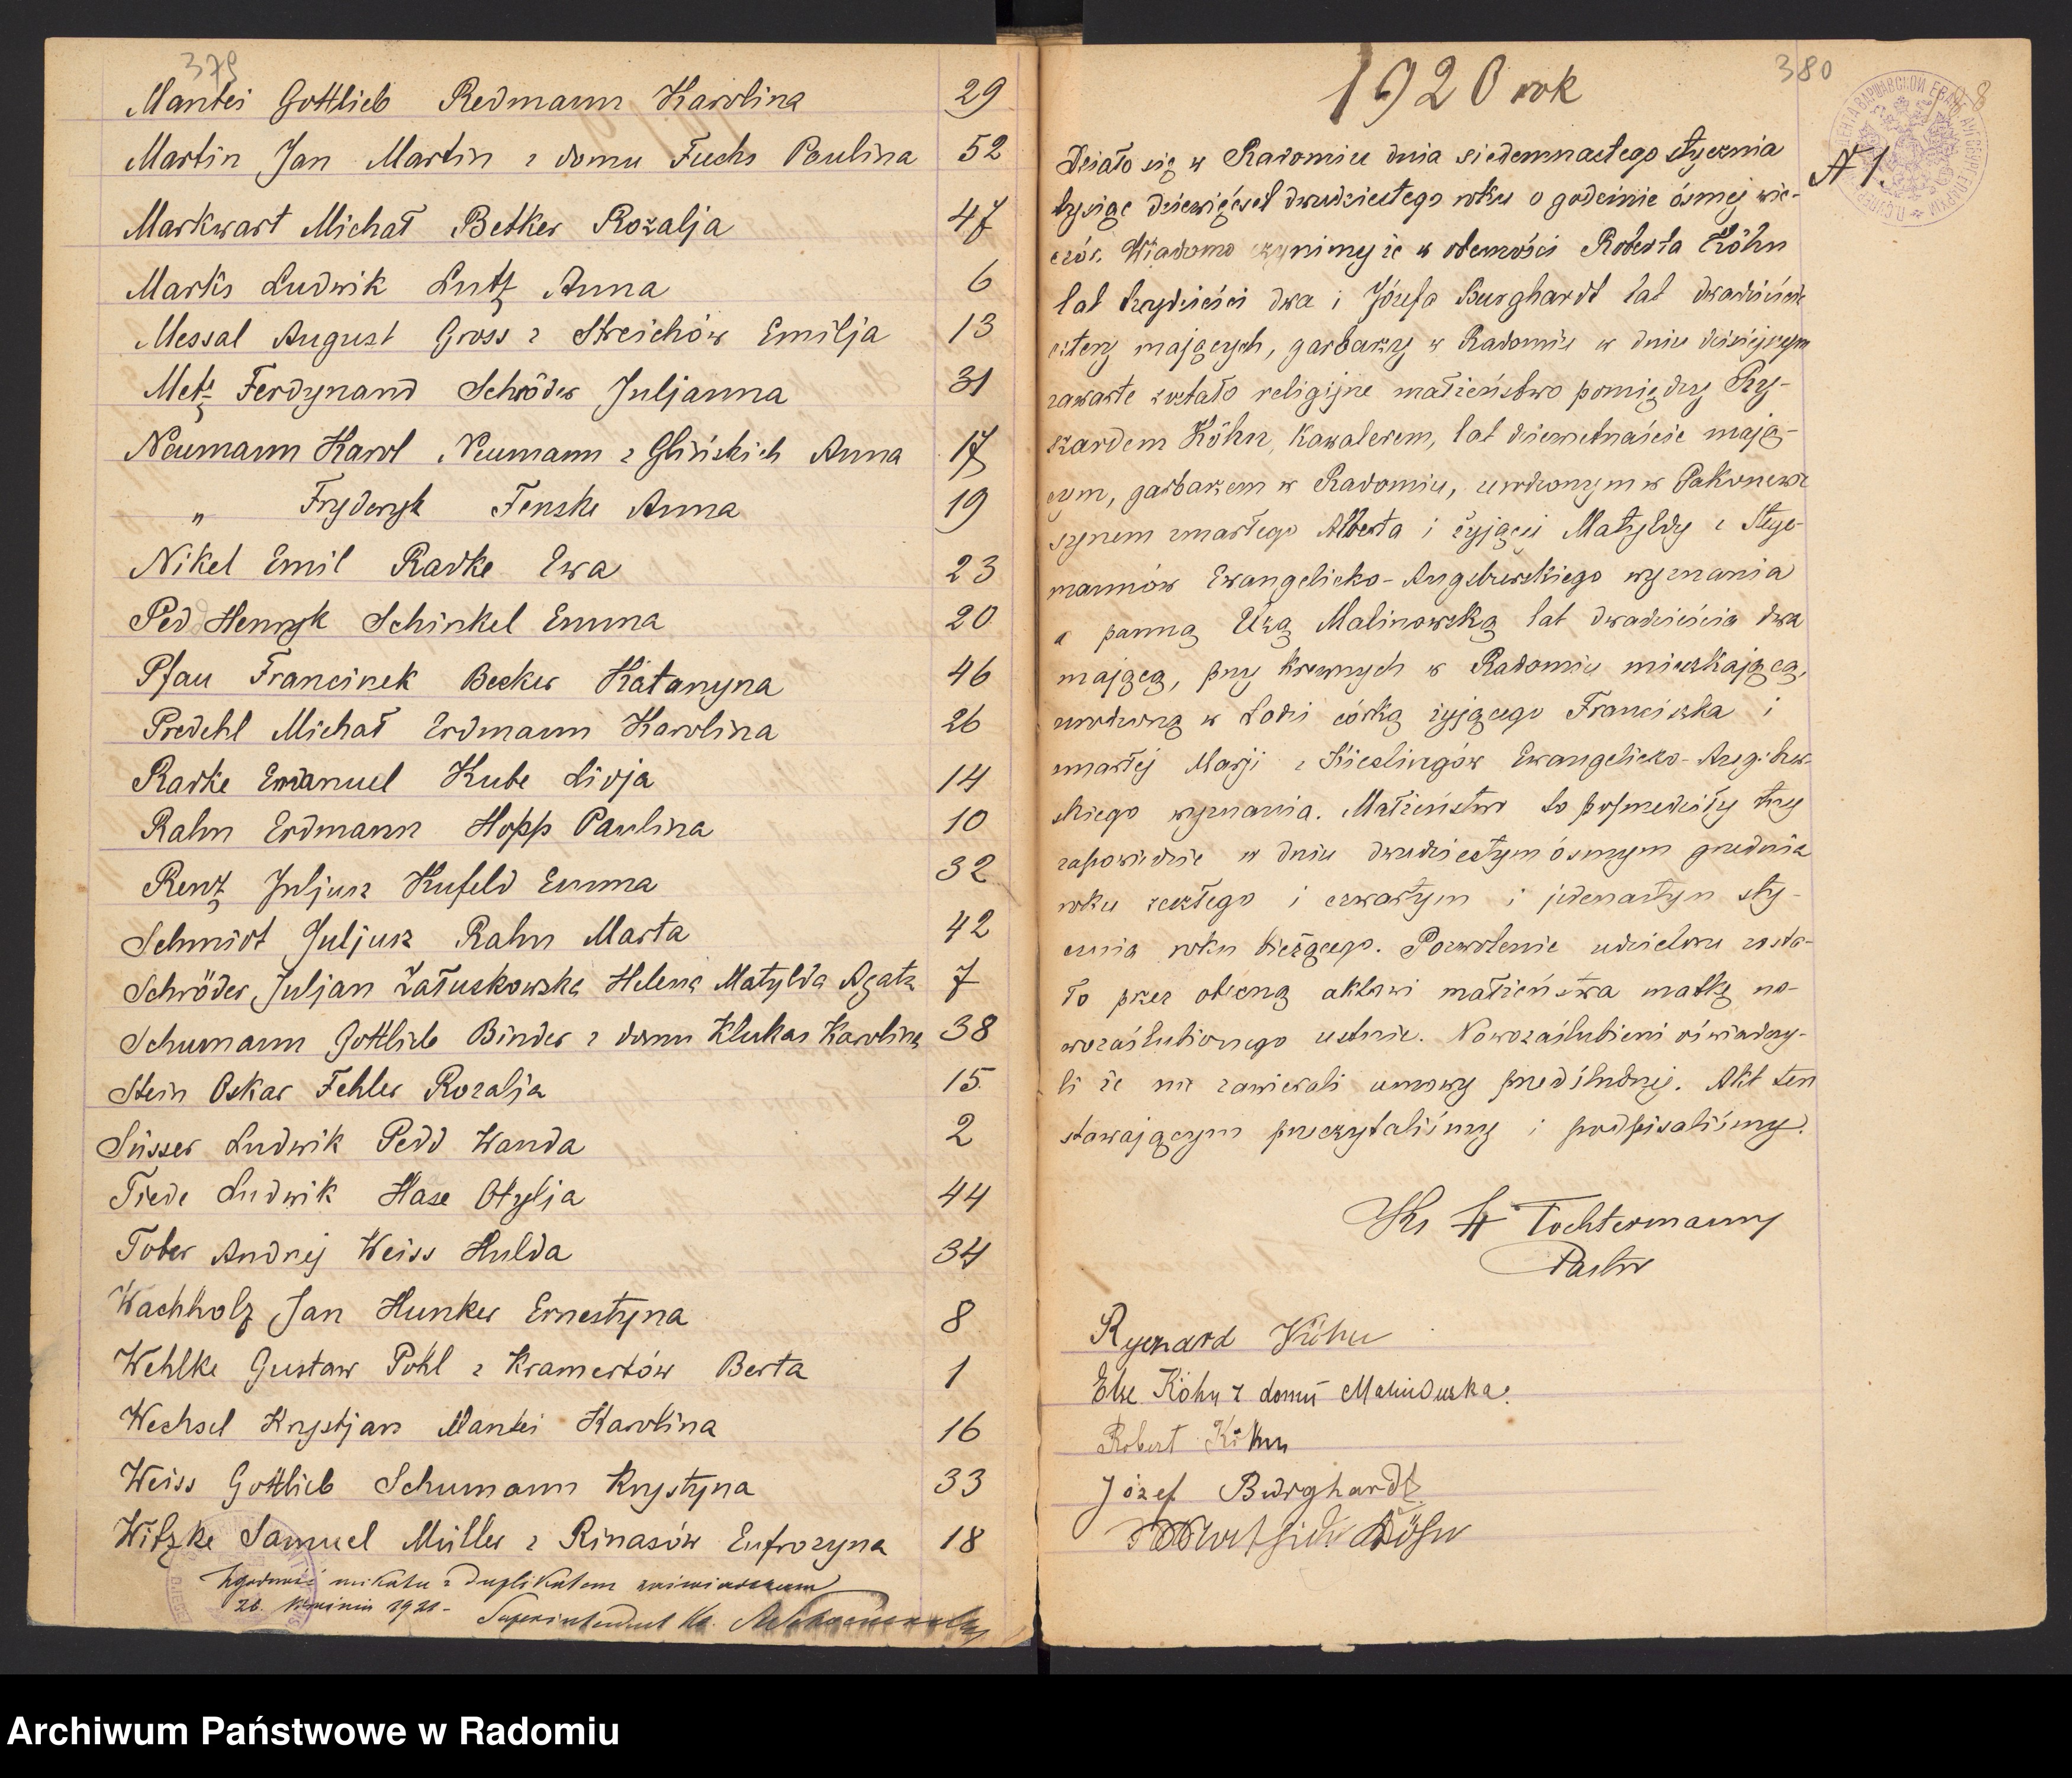 379
Mantei Gottlieb Redmann Karolina 29
Martin Jan Martin z domu Fuchs Paulina 52
Markwart Michał Betker Rozalja 47
Marks Ludwik Lutz Anna 6
Messal August Gross z Streichów Emilja 13
Metz Ferdynand Schröder Juljanna 31
Neumann Karol Neumann z Glińskich Anna 17
" Fryderyk Fenske Anna 19
Nikel Emil Radke Ewa 23
Ped Henryk Schinkel Emma 20
Pfau Franciszek Becker Katarzyna 46
Predehl Michał Erdmann Karolina 26
Radke Emanuel Kube Lidja 14
Rahn Erdmann Hopp Paulina 10
Renz Juljusz Hufeld Emma 32
Schmidt Juljusz Rahn Marta 42
Schröder Juljan Załuskowska Helena Matylda Agata 7
Schumann Gottlieb Binder z domu Klukas Karolina 38
Stein Oskar Fehler Rozalja 15
Süsser Ludwik Pedd Wanda 2
Tiede Ludwik Hase Otylja 44
Tober Andrzej Weiss Hulda 34
Wachholz Jan Hunker Ernestyna 8
Wehlke Gustaw Pohl z Kramertów Berta 1
Wechsel Krystjan Mantei Karolina 16
Weiss Gottlieb Schumann Krystyna 33
Witzke Samuel Müller z Rinasów Eufrozyna 18
Zgodność unikatu z duplikatem zaświadczam
26. 1921 - Superintendent Ks.
380
1920 rok
N 1.
Działo się w Radomiu dnia siedemnastego stycznia
tysiąc dziewięćset dwudziestego roku o godzinie ósmej wie-
czór. Wiadomo czynimy że w obecności Roberta Köhn
lat trzydzieści dwa i Józefa Burghardt lat dwadzieścia
cztery mających, garbarzy w Radomiu w dniu dzisiejszym
zawarte zostało religijne małżeństwo pomiędzy Ry-
szardem Köhn, kawalerem, lat dziewiętnaście mają-
cym, garbarzem w Radomiu, urodzonym w Pakoniewie
synem zmarłego Alberta i żyjącej Matyldy z Stege-
mannów Ewangelicko-Augsburskiego wyznania
a panną Elzą Malinowską lat dwadzieścia dwa
mającą, przy krewnych w Radomiu mieszkającą,
urodzoną w Łodzi córką żyjącego Franciszka i
zmarłej Marji z Kieslingów Ewangelicko-Augsbur-
skiego wyznania. Małżeństwo to poprzedziły trzy
zapowiedzie w dniu dwudziestym ósmym grudnia
roku zeszłego i czwartym i jedenastym sty-
cznia roku bieżącego. Pozwolenie udzielone zosta-
ło przez obecną aktowi małżeństwa matkę no-
wozaślubionego ustnie. Nowozaślubieni oświadczy-
li że nie zawierali umowy przedślubnej. Akt ten
stawającym przeczytaliśmy i podpisaliśmy.
Ks H Tochtermann
Pastor
Ryszard Köhn
Else Köhn z domu Malinowska.
Robert Köhn
Józef Burghardt
Köhn
Archiwum Państwowe w Radomiu